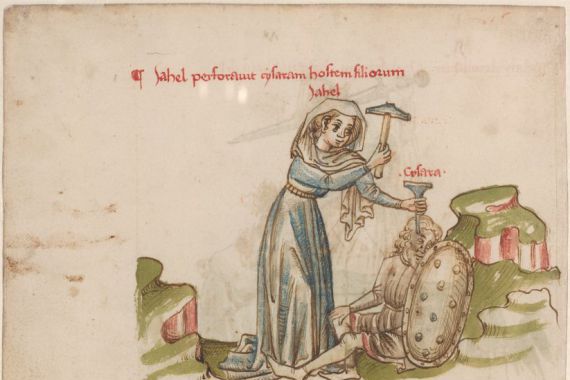 ¶ Jahel perforavit cysaram hostem filiorum
Jahel
. Cysara .